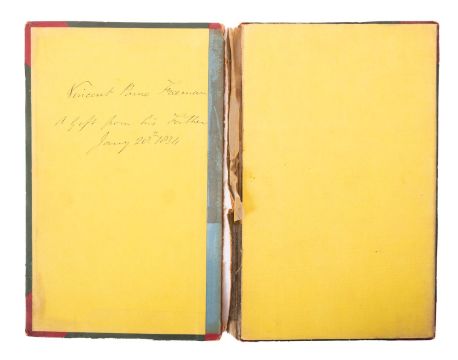 Vincent Freeman
A Gift from his Father
Jany 20th 1834